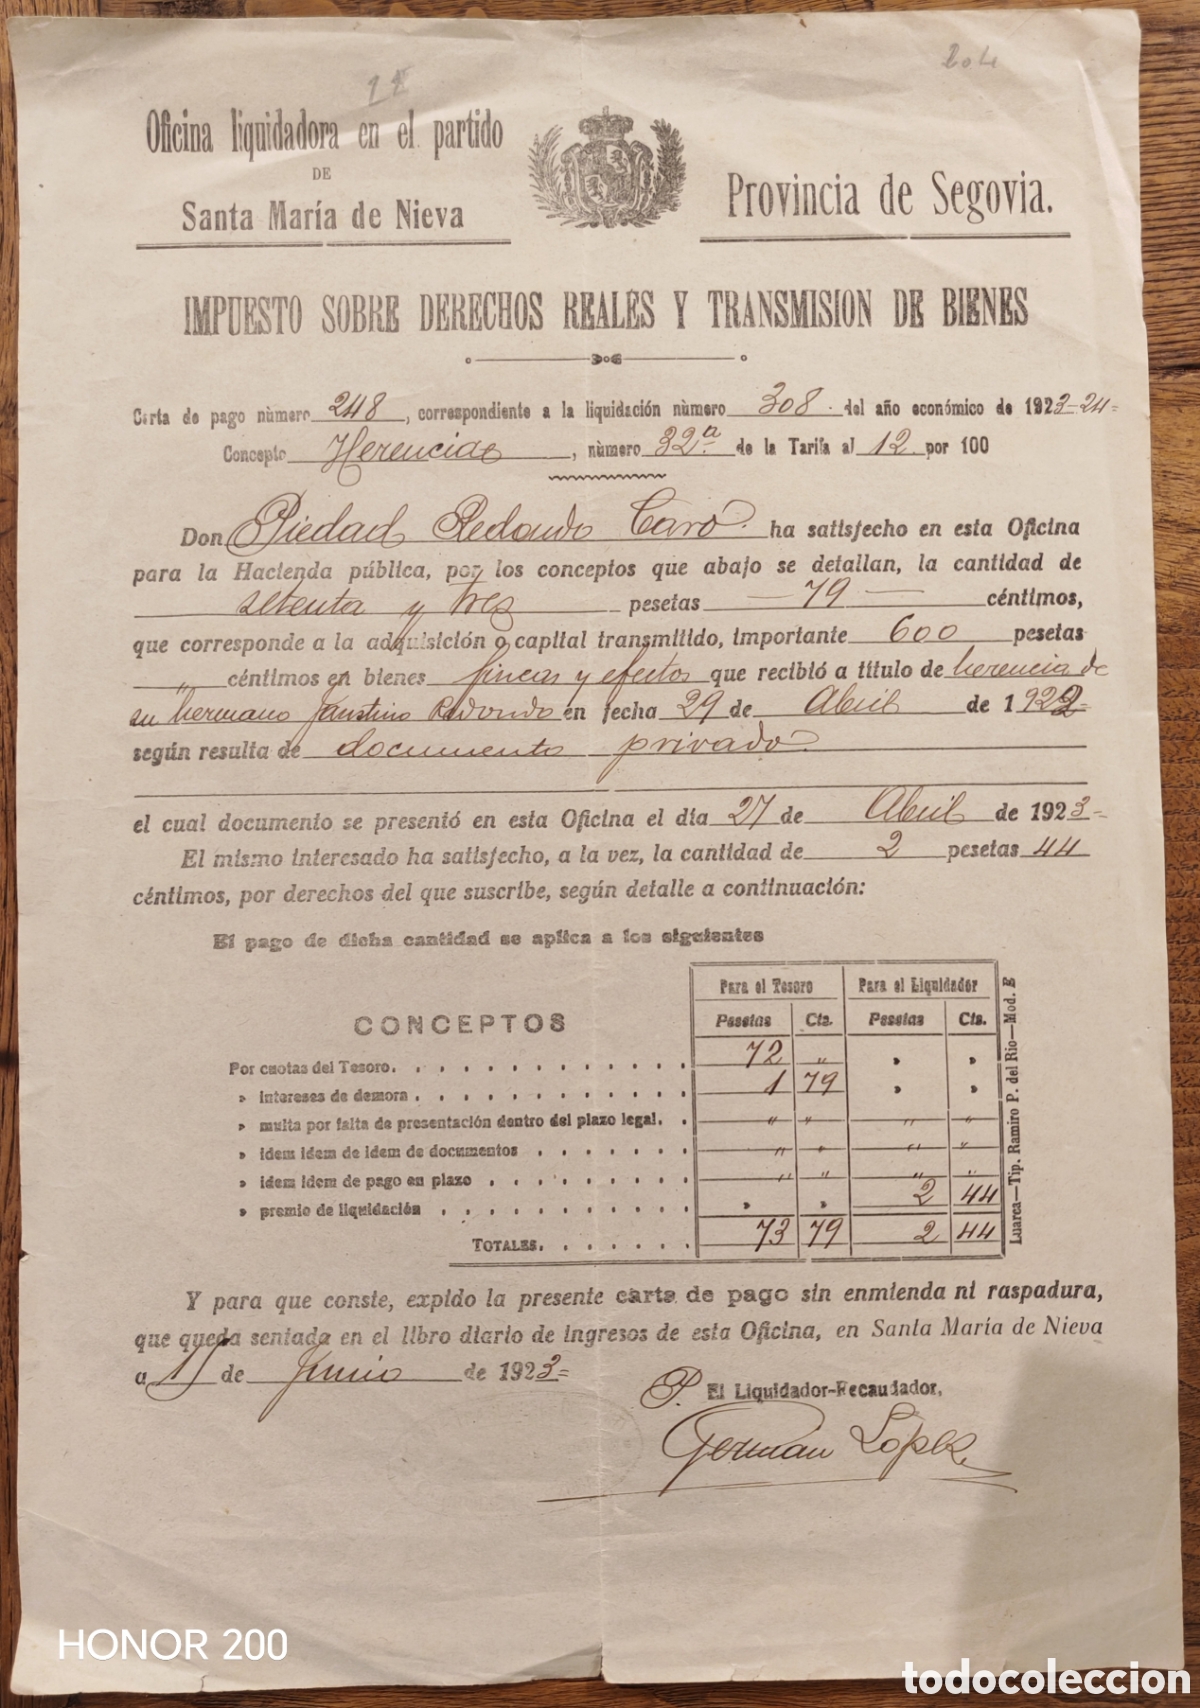 204
Oficina liquidadora en el partido
DE
Santa María de Nieva
Provincia de Segovia.
IMPUESTO SOBRE DERECHOS REALES Y TRANSMISION DE BIENES
Carta de pago nùmero 248, correspondiente a la liquidación nùmero 308 del año económico de 1923-24=
Concepto Herencias, nùmero 32ª de la Tarifa al 12 por 100
Don Piedad Redondo Caro ha satisfecho en esta Oficina
para la Hacienda pública, por los conceptos que abajo se detallan, la cantidad de
setenta y tres pesetas — 79 — céntimos,
que corresponde a la adquisición o capital transmitido, importante 600 pesetas
" céntimos en bienes fincas y efectos que recibió a titulo de herencia de
su hermano Faustino Redondo en fecha 29 de Abril de 1922=
según resulta de documento privado
el cual documento se presentó en esta Oficina el día 27 de Abril de 1923=
El mismo interesado ha satisfecho, a la vez, la cantidad de 2 pesetas 44
céntimos, por derechos del que suscribe, según detalle a continuación:
El pago de dicha cantidad se aplica a los siguientes
Para el Tesoro Para el Liquidador
CONCEPTOS Pesetas Cts. Pesetas Cts.
Por cuotas del Tesoro. 72 " » »
» intereses de demora. 1 79 » »
» multa por falta de presentación dentro del plazo legal. " " " "
» idem idem de idem de documentos " " " "
» idem idem de pago en plazo " " " "
» premio de liquidación » » 2 44
TOTALES. 73 79 2 44
Luarca—Tip. Ramiro P. del Rio—Mod. B
Y para que conste, expido la presente carta de pago sin enmienda ni raspadura,
que queda sentada en el libro diario de ingresos de esta Oficina, en Santa María de Nieva
a de Junio de 1923=
P. El Liquidador-Recaudador,
German López
HONOR 200
todocoleccion